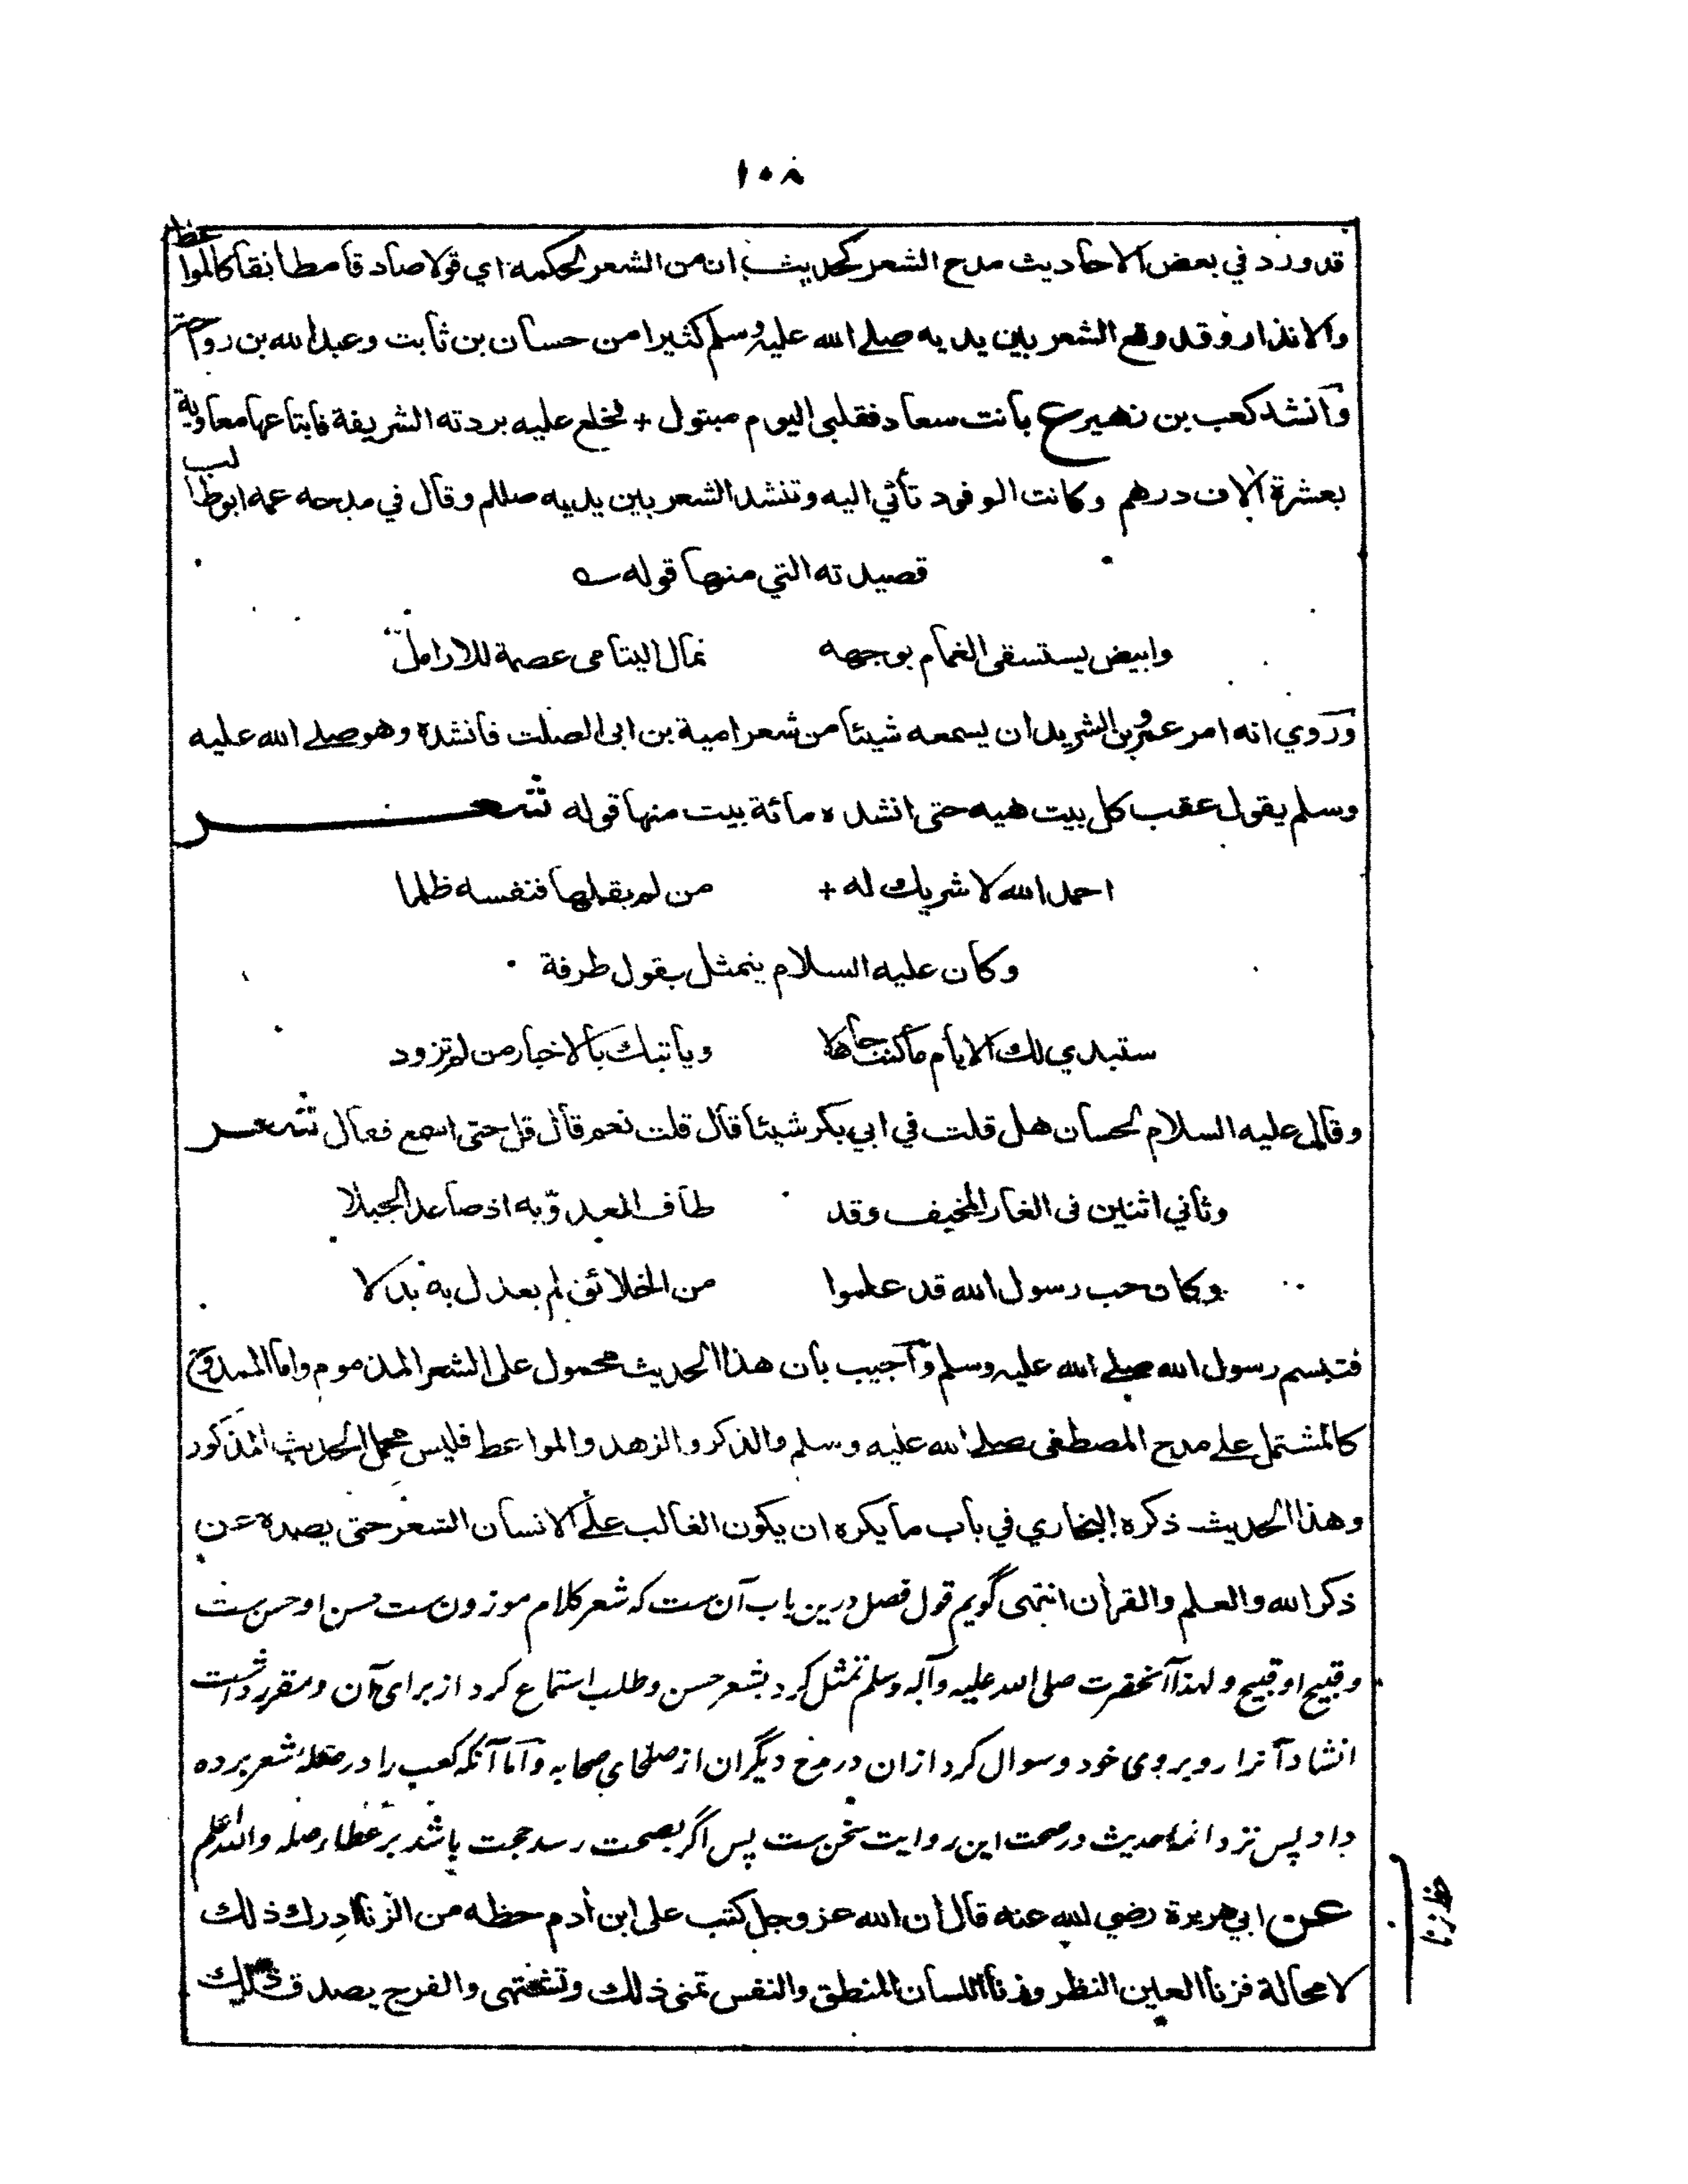 ١٠٨
قد ورد في بعض الاحاديث مدح الشعر كحديث ان من الشعر لحكمة اي قولا صادقا مطابقا كالمواعظ
والانذار وقد وقع الشعر بين يديه صلے الله عليه وسلم كثيرا من حسان بن ثابت وعبد الله بن رواحة
وانشد كعب بن زهير ع بانت سعاد فقلبى اليوم متبول + فخلع عليه بردته الشريفة فابتاعها معاوية
بعشرة آلاف درهم وكانت الوفود تأتي اليه وتنشد الشعر بين يديه صللم وقال في مدحه عمه ابوطالب
قصيدته التي منها قوله ؎
وابيض يستسقى الغمام بوجهه ثمال اليتامى عصمة للارامل
وروي انه امر عمرو بن الشريد ان يسمعه شيئا من شعر امية بن ابى الصلت فانشده وهو صلے الله عليه
وسلم يقول عقب كل بيت هيه حتى انشده مائة بيت منها قوله شعر
احمد الله لا شريك له + من لم يقلها فنفسه ظلما
وكان عليه السلام يتمثل بقول طرفة
ستبدي لك الايام ما كنت جاهلا وياتيك بالاخبار من لم تزود
وقال عليه السلام لحسان هل قلت في ابي بكر شيئا قال قلت نعم قال قل حتى اسمع فقال شعر
وثاني اثنين فى الغار المخيف وقد طاف العدو به اذ صاعد الجبلا
وكان حب رسول الله قد علموا من الخلائق لم يعدل به بدلا
فتبسم رسول الله صلے الله عليه وسلم وآجيب بان هذا الحديث محمول على الشعر المذموم واما الممدوح
كالمشتمل علے مدح المصطفى صلے الله عليه وسلم والذكر والزهد والمواعظ فليس محمل الحديث المذكور
وهذا الحديث ذكره البخاري في باب ما يكره ان يكون الغالب علے الانسان الشعر حتى يصده عن
ذكر الله والعلم والقرأن انتهى گويم قول فصل درين باب آن ست كه شعر كلام موزون ست حسن او حسن ست
وقبيح او قبيح ولهذا آنحضرت صلى الله عليه وآله وسلم تمثل كرد بشعر حسن وطلب استماع كرد از براى آن ومقرر داشت
انشاد آنرا روبروى خود وسوال كرد ازان در مدح ديگران از صلحاى صحابه وآما آنكه كعب را در صله شعر برده
داد پس نزد ائمه حديث در صحت اين روايت سخن ست پس اگر بصحت رسد حجت باشد بر عطاء صله والله اعلم
عن ابي هريرة رضي الله عنه قال ان الله عز وجل كتب على ابن أدم حظه من الزنا ادرك ذلك
لا محالة فزنا العين النظر وزنا اللسان المنطق والنفس تمنى ذلك وتشتهى والفرج يصدق ذلك